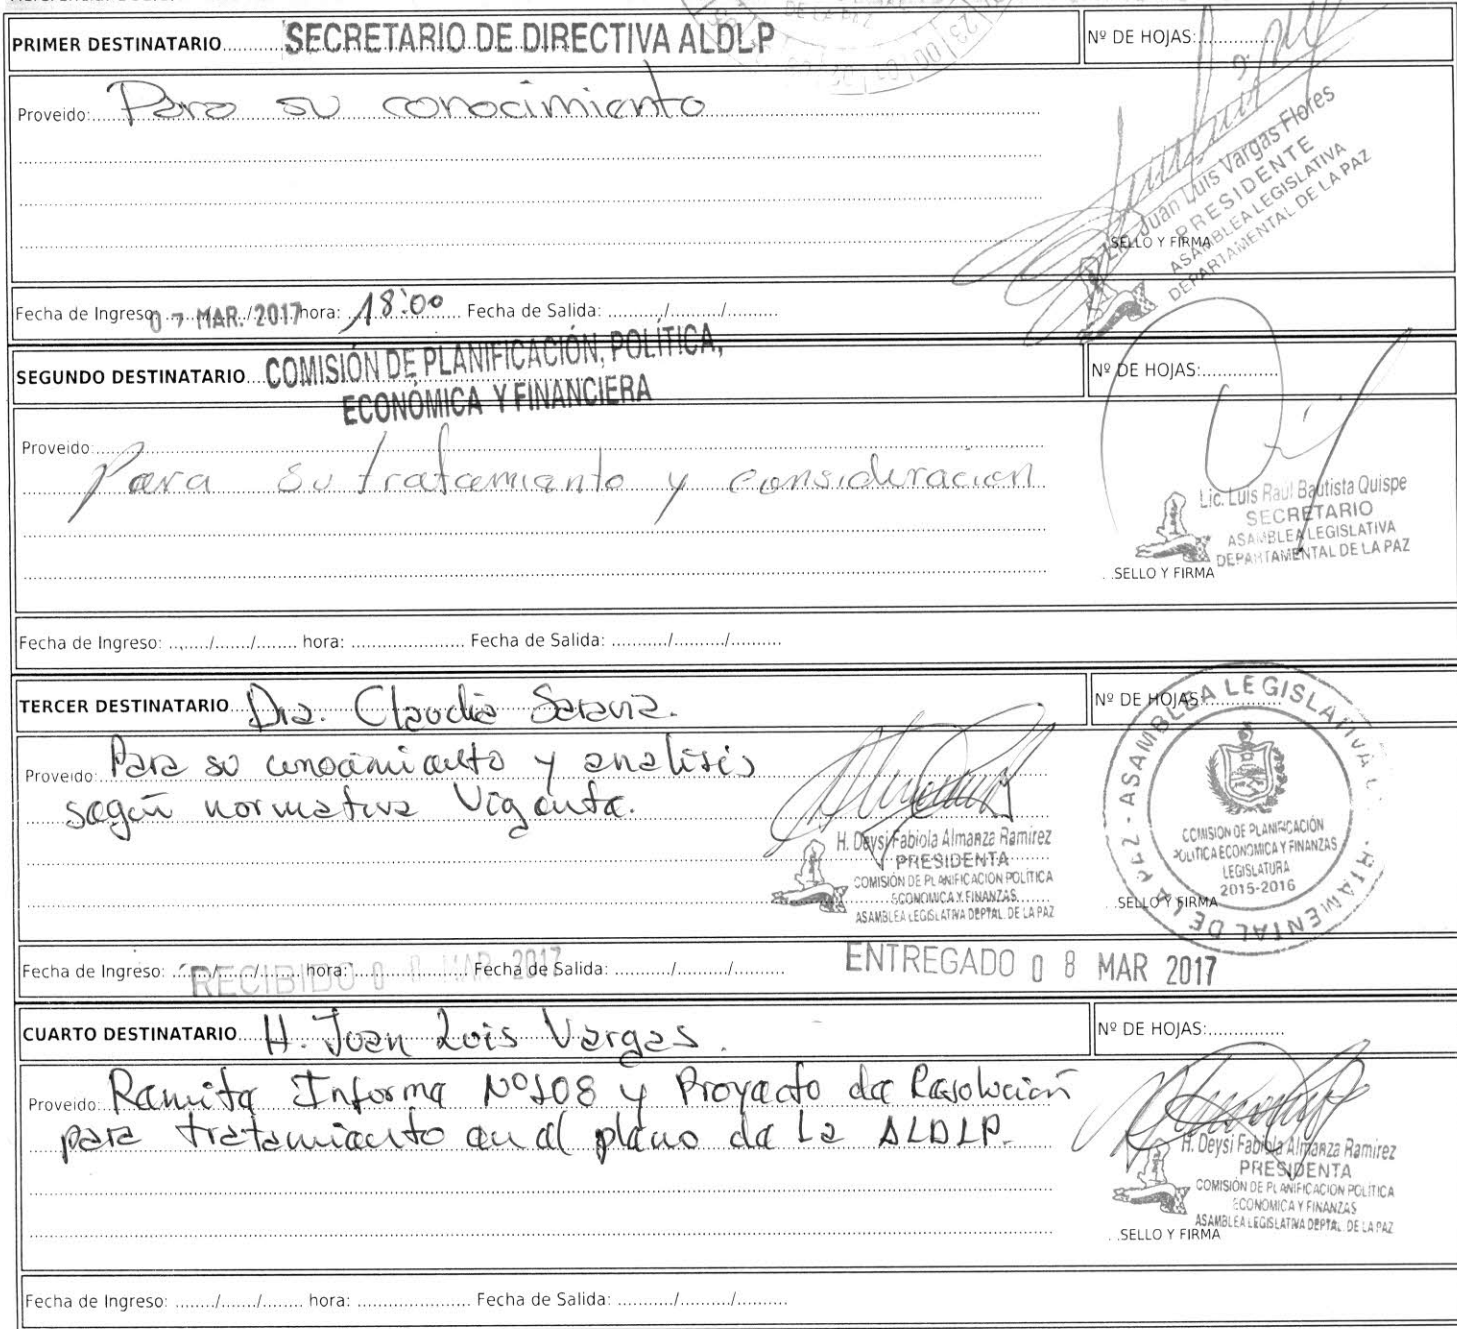 DE LA PAZ
PRIMER DESTINATARIO SECRETARIO DE DIRECTIVA ALDLP
Nº DE HOJAS:
Proveido: Para su conocimiento
Lic. Juan Luis Vargas Flores
PRESIDENTE
ASAMBLEA LEGISLATIVA
DEPARTAMENTAL DE LA PAZ
SELLO Y FIRMA
Fecha de Ingreso: 07 MAR. 2017 hora: 18:00 Fecha de Salida: ........../........../..........
SEGUNDO DESTINATARIO COMISIÓN DE PLANIFICACIÓN, POLÍTICA,
ECONÓMICA Y FINANCIERA
Nº DE HOJAS:
Proveido:
Para su tratamiento y consideracion
Lic. Luis Raul Bautista Quispe
SECRETARIO
ASAMBLEA LEGISLATIVA
DEPARTAMENTAL DE LA PAZ
SELLO Y FIRMA
Fecha de Ingreso: ......../......./........ hora: ...................... Fecha de Salida: .........../........../..........
TERCER DESTINATARIO Dra. Claudia Saravia.
Nº DE HOJAS:
Proveido: Para su conocimiento y analisis
según normativa Vigente.
H. Deysi Fabiola Almanza Ramirez
PRESIDENTA
COMISIÓN DE PLANIFICACION POLÍTICA
ECONOMICA Y FINANZAS
ASAMBLEA LEGISLATIVA DEPTAL. DE LA PAZ
ASAMBLEA LEGISLATIVA DEPARTAMENTAL DE LA PAZ
COMISION DE PLANIFICACIÓN
POLITICA ECONOMICA Y FINANZAS
LEGISLATURA
2015-2016
SELLO Y FIRMA
Fecha de Ingreso: hora: Fecha de Salida: .........../........../..........
RECIBIDO MAR 2017
ENTREGADO 08 MAR 2017
CUARTO DESTINATARIO H. Juan Luis Vargas.
Nº DE HOJAS:
Proveido: Remite Informe Nº108 y Proyecto de Resolución
para tratamiento en el pleno de la ALDLP.
H. Deysi Fabiola Almanza Ramirez
PRESIDENTA
COMISIÓN DE PLANIFICACION POLÍTICA
ECONOMICA Y FINANZAS
ASAMBLEA LEGISLATIVA DEPTAL. DE LA PAZ
SELLO Y FIRMA
Fecha de Ingreso: ......../......./........ hora: ...................... Fecha de Salida: .........../........../..........